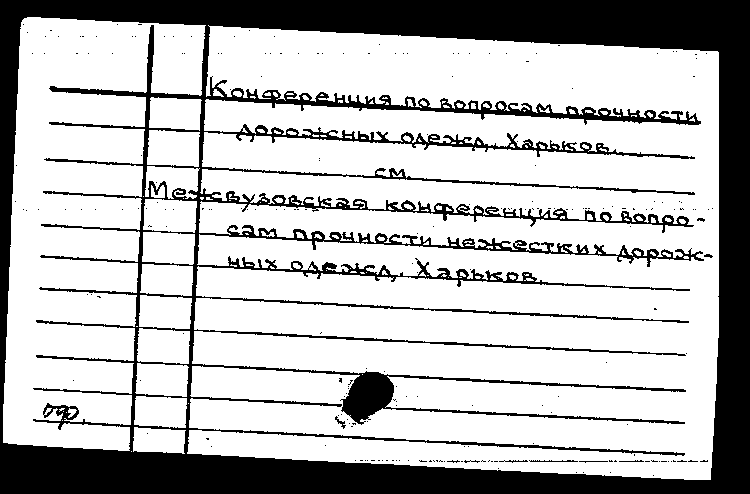 Конференция по вопросам прочности
дорожных одежд. Харьков.
см.
Межвузовская конференция по вопро-
сам прочности нежестких дорож-
ных одежд. Харьков.